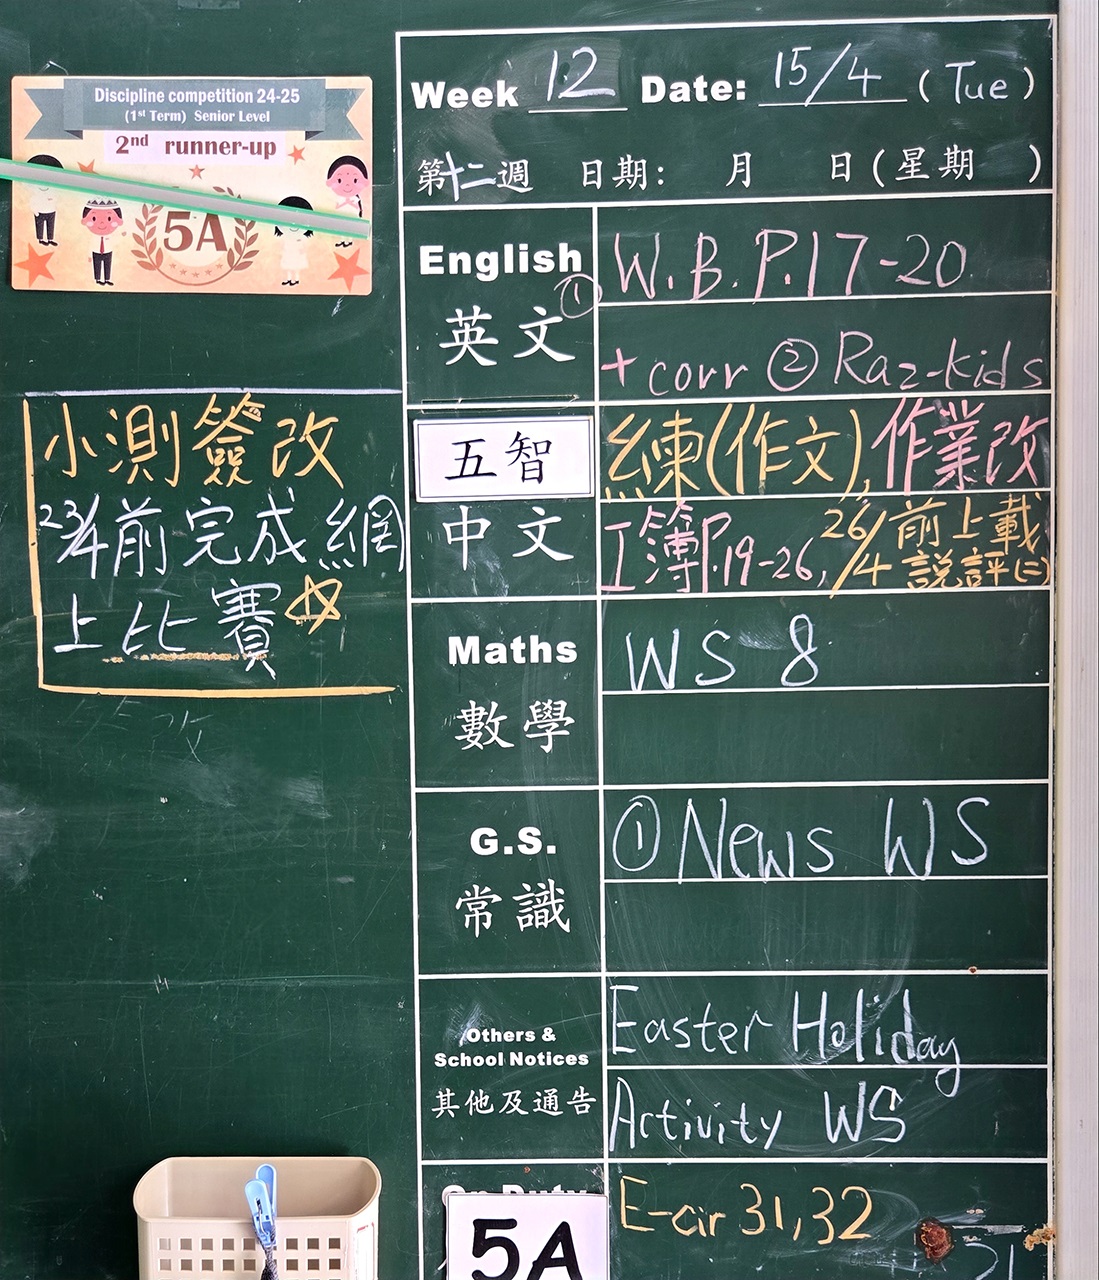 Discipline competition 24-25
(1st Term) Senior Level
2nd runner-up
5A
小測簽改
23/4前完成網
上比賽
Week 12 Date: 15/4 (Tue)
第十二週 日期: 月 日(星期 )
English ① W.B. P.17-20
英文 + corr ② Raz-kids
五智 練(作文), 作業改
中文 工簿P.19-26, 26/4前上載說評(二)
Maths WS 8
數學
G.S. ① News WS
常識
Others & Easter Holiday
School Notices
其他及通告 Activity WS
On Duty E-cir 31,32
5A
21